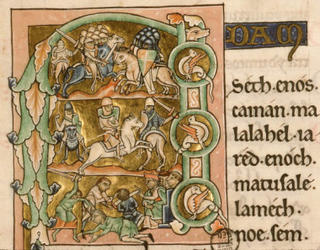 DAM
Seth · enos ·
cainan · ma
lalahel · ia
red · enoch ·
matusalé ·
lamech ·
noe · sem ·